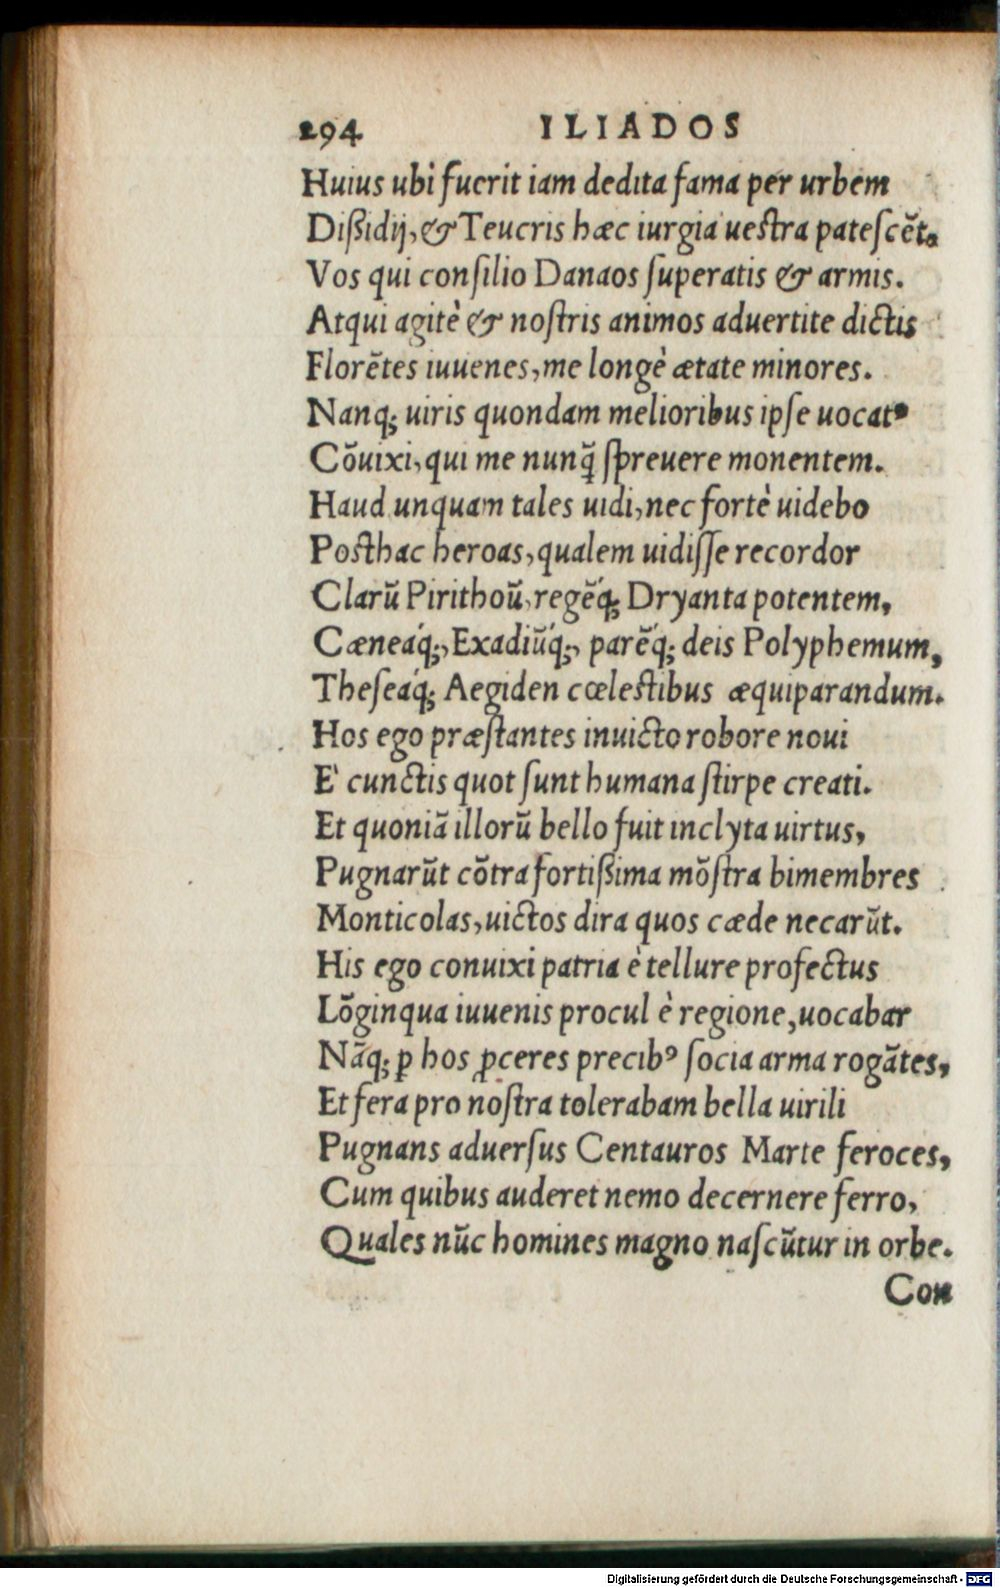 294 ILIADOS
Huius ubi fuerit iam dedita fama per urbem
Dißidij, & Teucris hæc iurgia uestra patescẽt.
Vos qui consilio Danaos superatis & armis.
Atqui agitè & nostris animos aduertite dictis
Florẽtes iuuenes, me longè ætate minores.
Nanq; uiris quondam melioribus ipse uocatꝰ
Cõuixi, qui me nunq̃ spreuere monentem.
Haud unquam tales uidi, nec fortè uidebo
Posthac heroas, qualem uidisse recordor
Clarũ Pirithoũ, regẽq́; Dryanta potentem,
Cæneaq́;, Exadiũq́;, parẽq́; deis Polyphemum,
Theseaq́; Aegiden cœlestibus æquiparandum.
Hos ego præstantes inuicto robore noui
E' cunctis quot sunt humana stirpe creati.
Et quoniã illorũ bello fuit inclyta uirtus,
Pugnarũt cõtra fortißima mõstra bimembres
Monticolas, uictos dira quos cæde necarũt.
His ego conuixi patria è tellure profectus
Lõginqua iuuenis procul è regione, uocabar
Nãq; ꝑ hos ꝓceres precibꝰ socia arma rogãtes,
Et fera pro nostra tolerabam bella uirili
Pugnans aduersus Centauros Marte feroces,
Cum quibus auderet nemo decernere ferro,
Quales nũc homines magno nascũtur in orbe.
Con
Digitalisierung gefördert durch die Deutsche Forschungsgemeinschaft - DFG